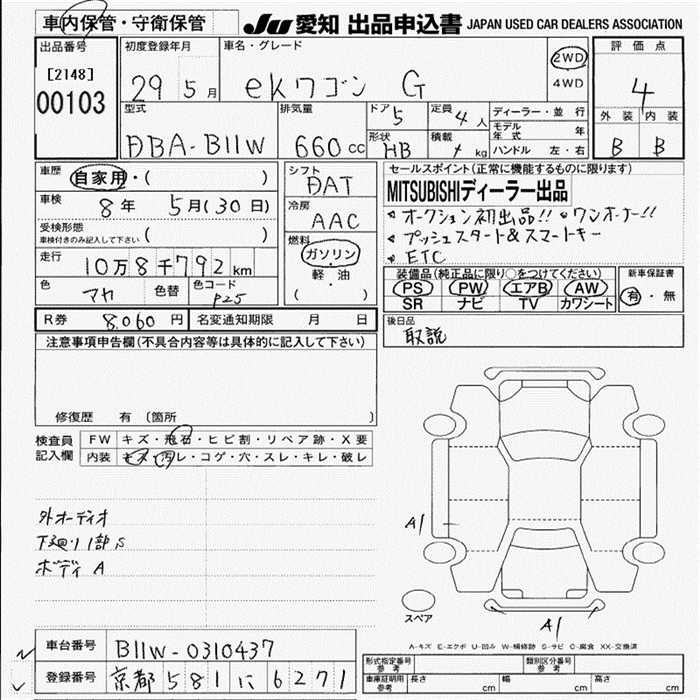 車内保管・守衛保管
JU 愛知 出品申込書 JAPAN USED CAR DEALERS ASSOCIATION
出品番号
[2148]
00103
初度登録年月
29 5月
車名・グレード
ekワゴン G
2WD
4WD
評価点
4
外装 内装
B B
型式
DBA-B11W
排気量
660cc
ドア
5
定員
4人
形状
HB
積載
kg
ディーラー・並行
モデル年式 年
ハンドル 左・右
車歴
自家用・( )
車検
8年 5月(30日)
受検形態
車検付きのみ記入して下さい ( )
走行
10万8千792km
色
マカ
色替
色コード
P25
シフト
DAT
冷房
AAC
燃料
ガソリン
軽・油
( )
セールスポイント(正常に機能するものに限ります)
MITSUBISHIディーラー出品
オークション初出品!! ワンオーナー!!
プッシュスタート&スマートキー
ETC
装備品(純正品に限り○をつけてください)
PS PW エアB AW
SR ナビ TV カワシート
新車保証書
有・無
R券 8,060円 名変通知期限 月 日
後日品
取説
注意事項申告欄(不具合内容等は具体的に記入して下さい)
修復歴 有 〔箇所 〕
検査員記入欄
FW キズ・飛石・ヒビ割・リペア跡・X要
内装 キズ・汚レ・コゲ・穴・スレ・キレ・破レ
外オーディオ
下廻り1部S
ボディA
A1
スペア
A1
A-キズ E-エクボ U-凹み W-補修跡 S-サビ C-腐食 XX-交換済
車台番号 B11W-0310437
登録番号 京都581に6271
形式指定番号 参考
類別区分番号 参考
車庫証明用 参考 長さ cm 幅 cm 高さ cm